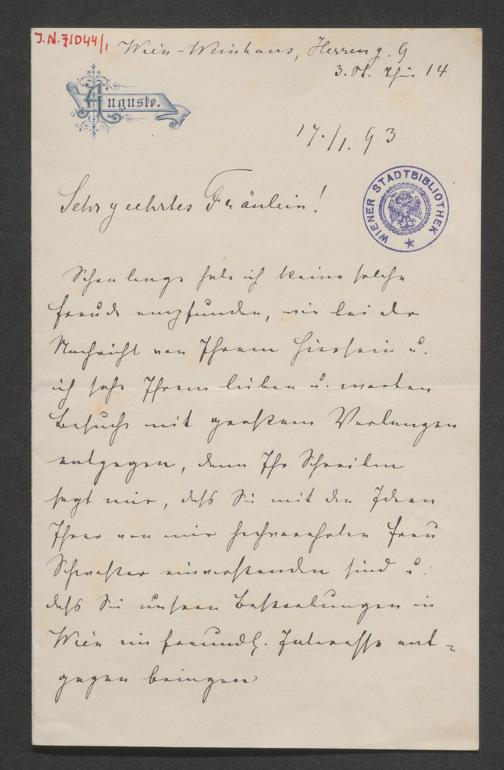 J.N. 71044/1
Wien-Weinhaus, Herreng. 9
3. St. Thür 14
Auguste.
17./1. 93
WIENER STADTBIBLIOTHEK
Sehr geehrtes Fräulein!
Schon lange habe ich keine solche
Freude empfunden, wie bei der
Nachricht von Ihrem Hiersein u.
ich sehe Ihrem lieben u. werten
Besuche mit großem Verlangen
entgegen, denn Ihr Schreiben
sagt mir, daß Sie mit den Ideen
Ihrer von mir hochverehrten Frau
Schwester einverstanden sind u.
daß Sie unseren Bestrebungen in
Wien ein freundl. Interesse ent-
gegen bringen